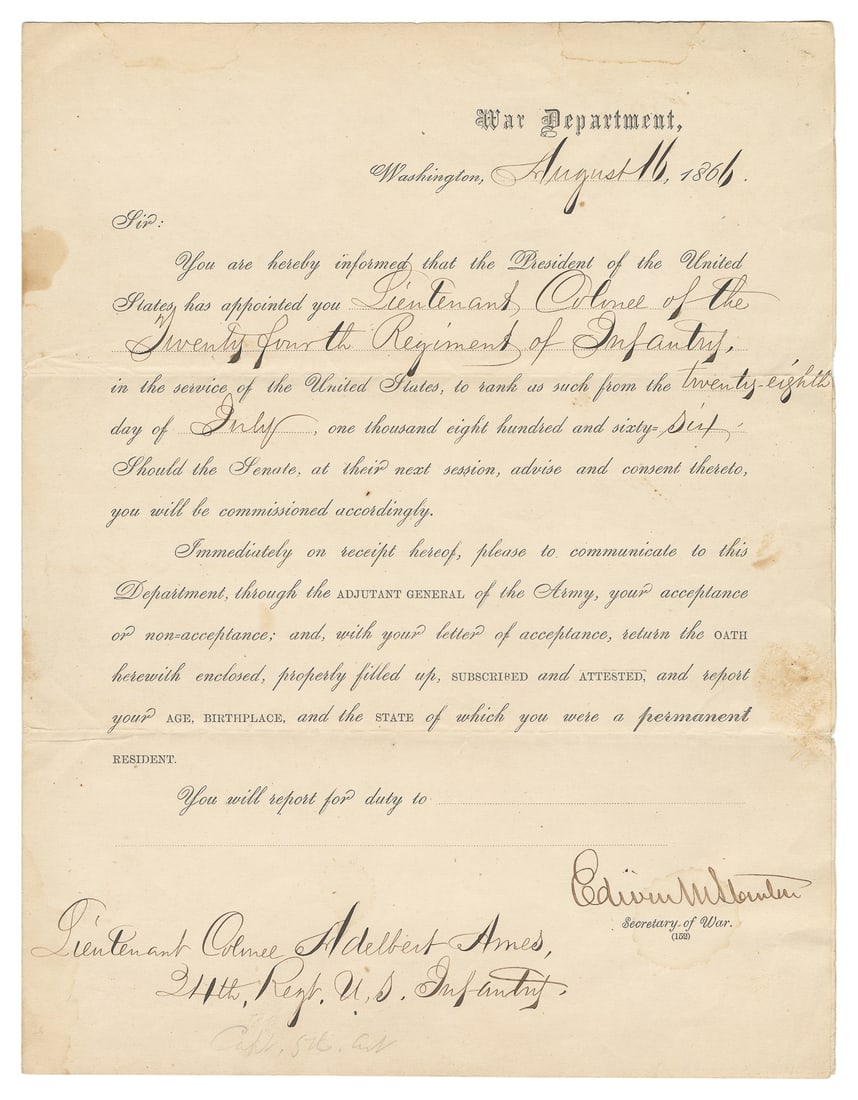 War Department,
Washington, August 16, 1866.
Sir:
You are hereby informed that the President of the United
States, has appointed you Lieutenant Colonel of the
Twenty fourth Regiment of Infantry,
in the service of the United States, to rank as such from the twenty-eighth
day of July, one thousand eight hundred and sixty=six.
Should the Senate, at their next session, advise and consent thereto,
you will be commissioned accordingly.
Immediately on receipt hereof, please to communicate to this
Department, through the ADJUTANT GENERAL of the Army, your acceptance
or non=acceptance; and, with your letter of acceptance, return the OATH
herewith enclosed, properly filled up, SUBSCRIBED and ATTESTED, and report
your AGE, BIRTHPLACE, and the STATE of which you were a permanent
RESIDENT.
You will report for duty to
Edwin M Stanton
Secretary of War.
(152)
Lieutenant Colonel Adelbert Ames,
24th, Regt. U, S, Infantry.
Capt. 5th. Art